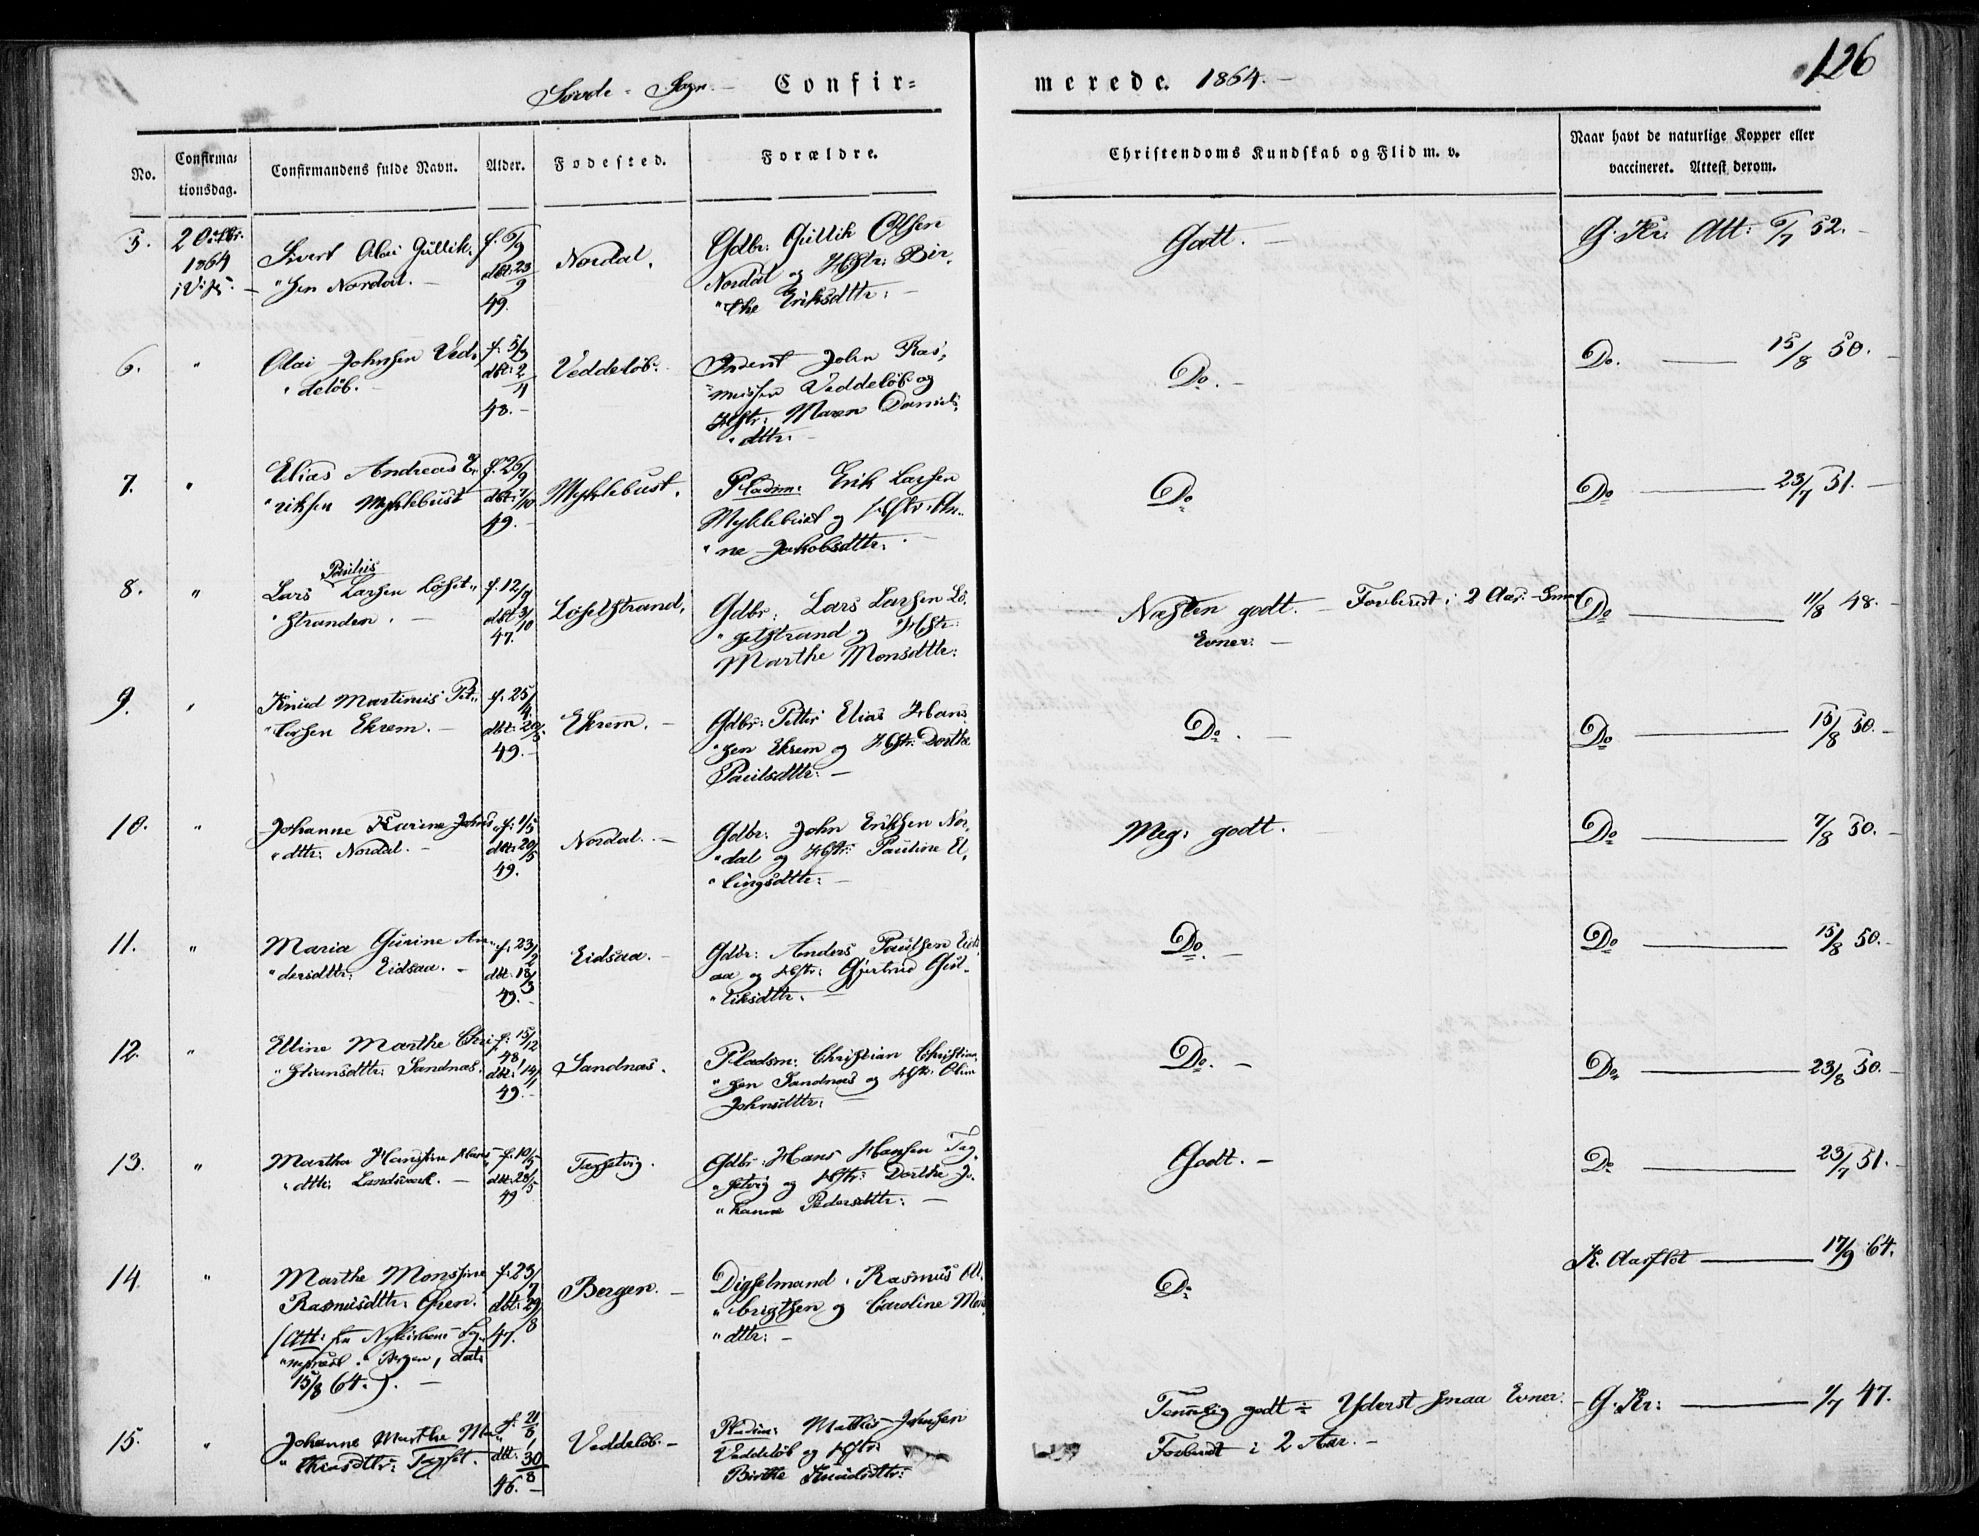 126
Sovde - Sogn. - Confir=
merede. 1864. -
No.
Confirma=
tionsdag.
Confirmandens fulde Navn.
Alder.
Fødested.
Forældre.
Christendoms Kundskab og Flid m. v.
Naar havt de naturlige Kopper eller
vaccineret. Attest derom.
5.
2 Octbr.
1864
Sivert Olai Gullik,
"sen Nordal. -
dbt: 23/9
49.
Nordal.
Gdbr: Gullik Olsen
Nordal og Hstr: Bir,
"the Eriksdttr: -
Godt. -
G. Kr: Att: 52. -
6. "
Olai Johnsen Ved,
"deløb. -
f. 5/3
dbt: 2/4
48. -
Veddeløb.
John Ras,
"mussen Veddeløb og
Hstr: Maren Daniels,
"dttr: -
Do. -
Do. 15/8 50. -
7. "
Elias Andreas E,
"riksen Myklebust
f. 26/9
dbt: 7/10
49. -
Myklebust.
Pladsm: Erik Larsen
Myklebust og Hstr: An,
"ne Jakobsdttr: -
Do
Do 23/7 51. -
8. "
Paulus
Lars Larsen Løset,
"stranden. -
f. 12/9
dbt: 31/10
47.
Løsetstrand.
Gdbr: Lars Larsen Lø,
"setstrand og Hstr:
Marthe Monsdttr:
Næsten godt. - Forberedt i 2 Aar. - Smaa
Evner. -
Do 11/8 48. -
9. "
Knud Martinus Pet,
"tersen Ekrem. -
f. 25/4
dbt: 20/5
49. -
Ekrem. -
Gdbr: Petter Elias Hans,
"sen Ekrem og Hstr: Dorthe
Paulsdttr: -
Do. -
Do 15/8 50. -
10. "
Johanne Karine Johns,
"dttr: Nordal. -
f: 1/5
dbt: 20/5
49.
Nordal. -
Gdbr: John Eriksen Nor,
"dal og Hstr: Pauline El,
"lingsdttr: -
Meg: godt.
Do 7/8 50. -
11. "
Maria Gurine An,
"dersdttr: Eidsaa. -
f. 23/2
dbt: 18/3
49. -
Eidsaa. -
Gdbr: Anders Paulsen Eids,
aa og Hstr: Gjertrud Gul,
"liksdttr. -
Do. -
Do 15/8 50. -
12. "
Elline Marthe Chri,
"stiansdttr: Sandnæs.
f: 15/12
48.
dbt: 14/1
49. -
Sandnæs.
Pladsm: Christian Christian,
"sen Sandnæs og Hstr: Oline
Johnsdttr: -
Do. -
Do 23/8 50. -
13. "
Martha Hansine Hans,
"dttr: Landsværk. -
f. 10/5
dbt: 28/5
49
Tagsetvig.
Gdbr: Hans Hansen Tag,
"setvig og Hstr: Dorthe Jo,
"hanne Pedersdttr: -
Godt. -
Do 23/7 51. -
14. "
Marthe Monsine
Rasmusdttr: Øren.
(Att: fra Nykirkens Sog,
"nepræst i Bergen, dat:
15/8 64.). -
f. 23/7
dbt: 29/8
47.
Bergen. -
Digselmand, Rasmus Al,
"brigtsen og Caroline Mons,
"dttr: -
Do
K. Aarflot 17/9 64.
15. "
Johanne Marthe Ma,
"thiasdttr: Tagset.
dbt: 30/8
46. -
Veddeløb. -
Pladsm: Mathis Johnsen
Veddeløb og Hstr:
Birthe Knudsdttr:
Temmelig godt - Yderst smaa Evner. -
Forberedt i 2 Aar. -
G. Kr: 1/7 47.